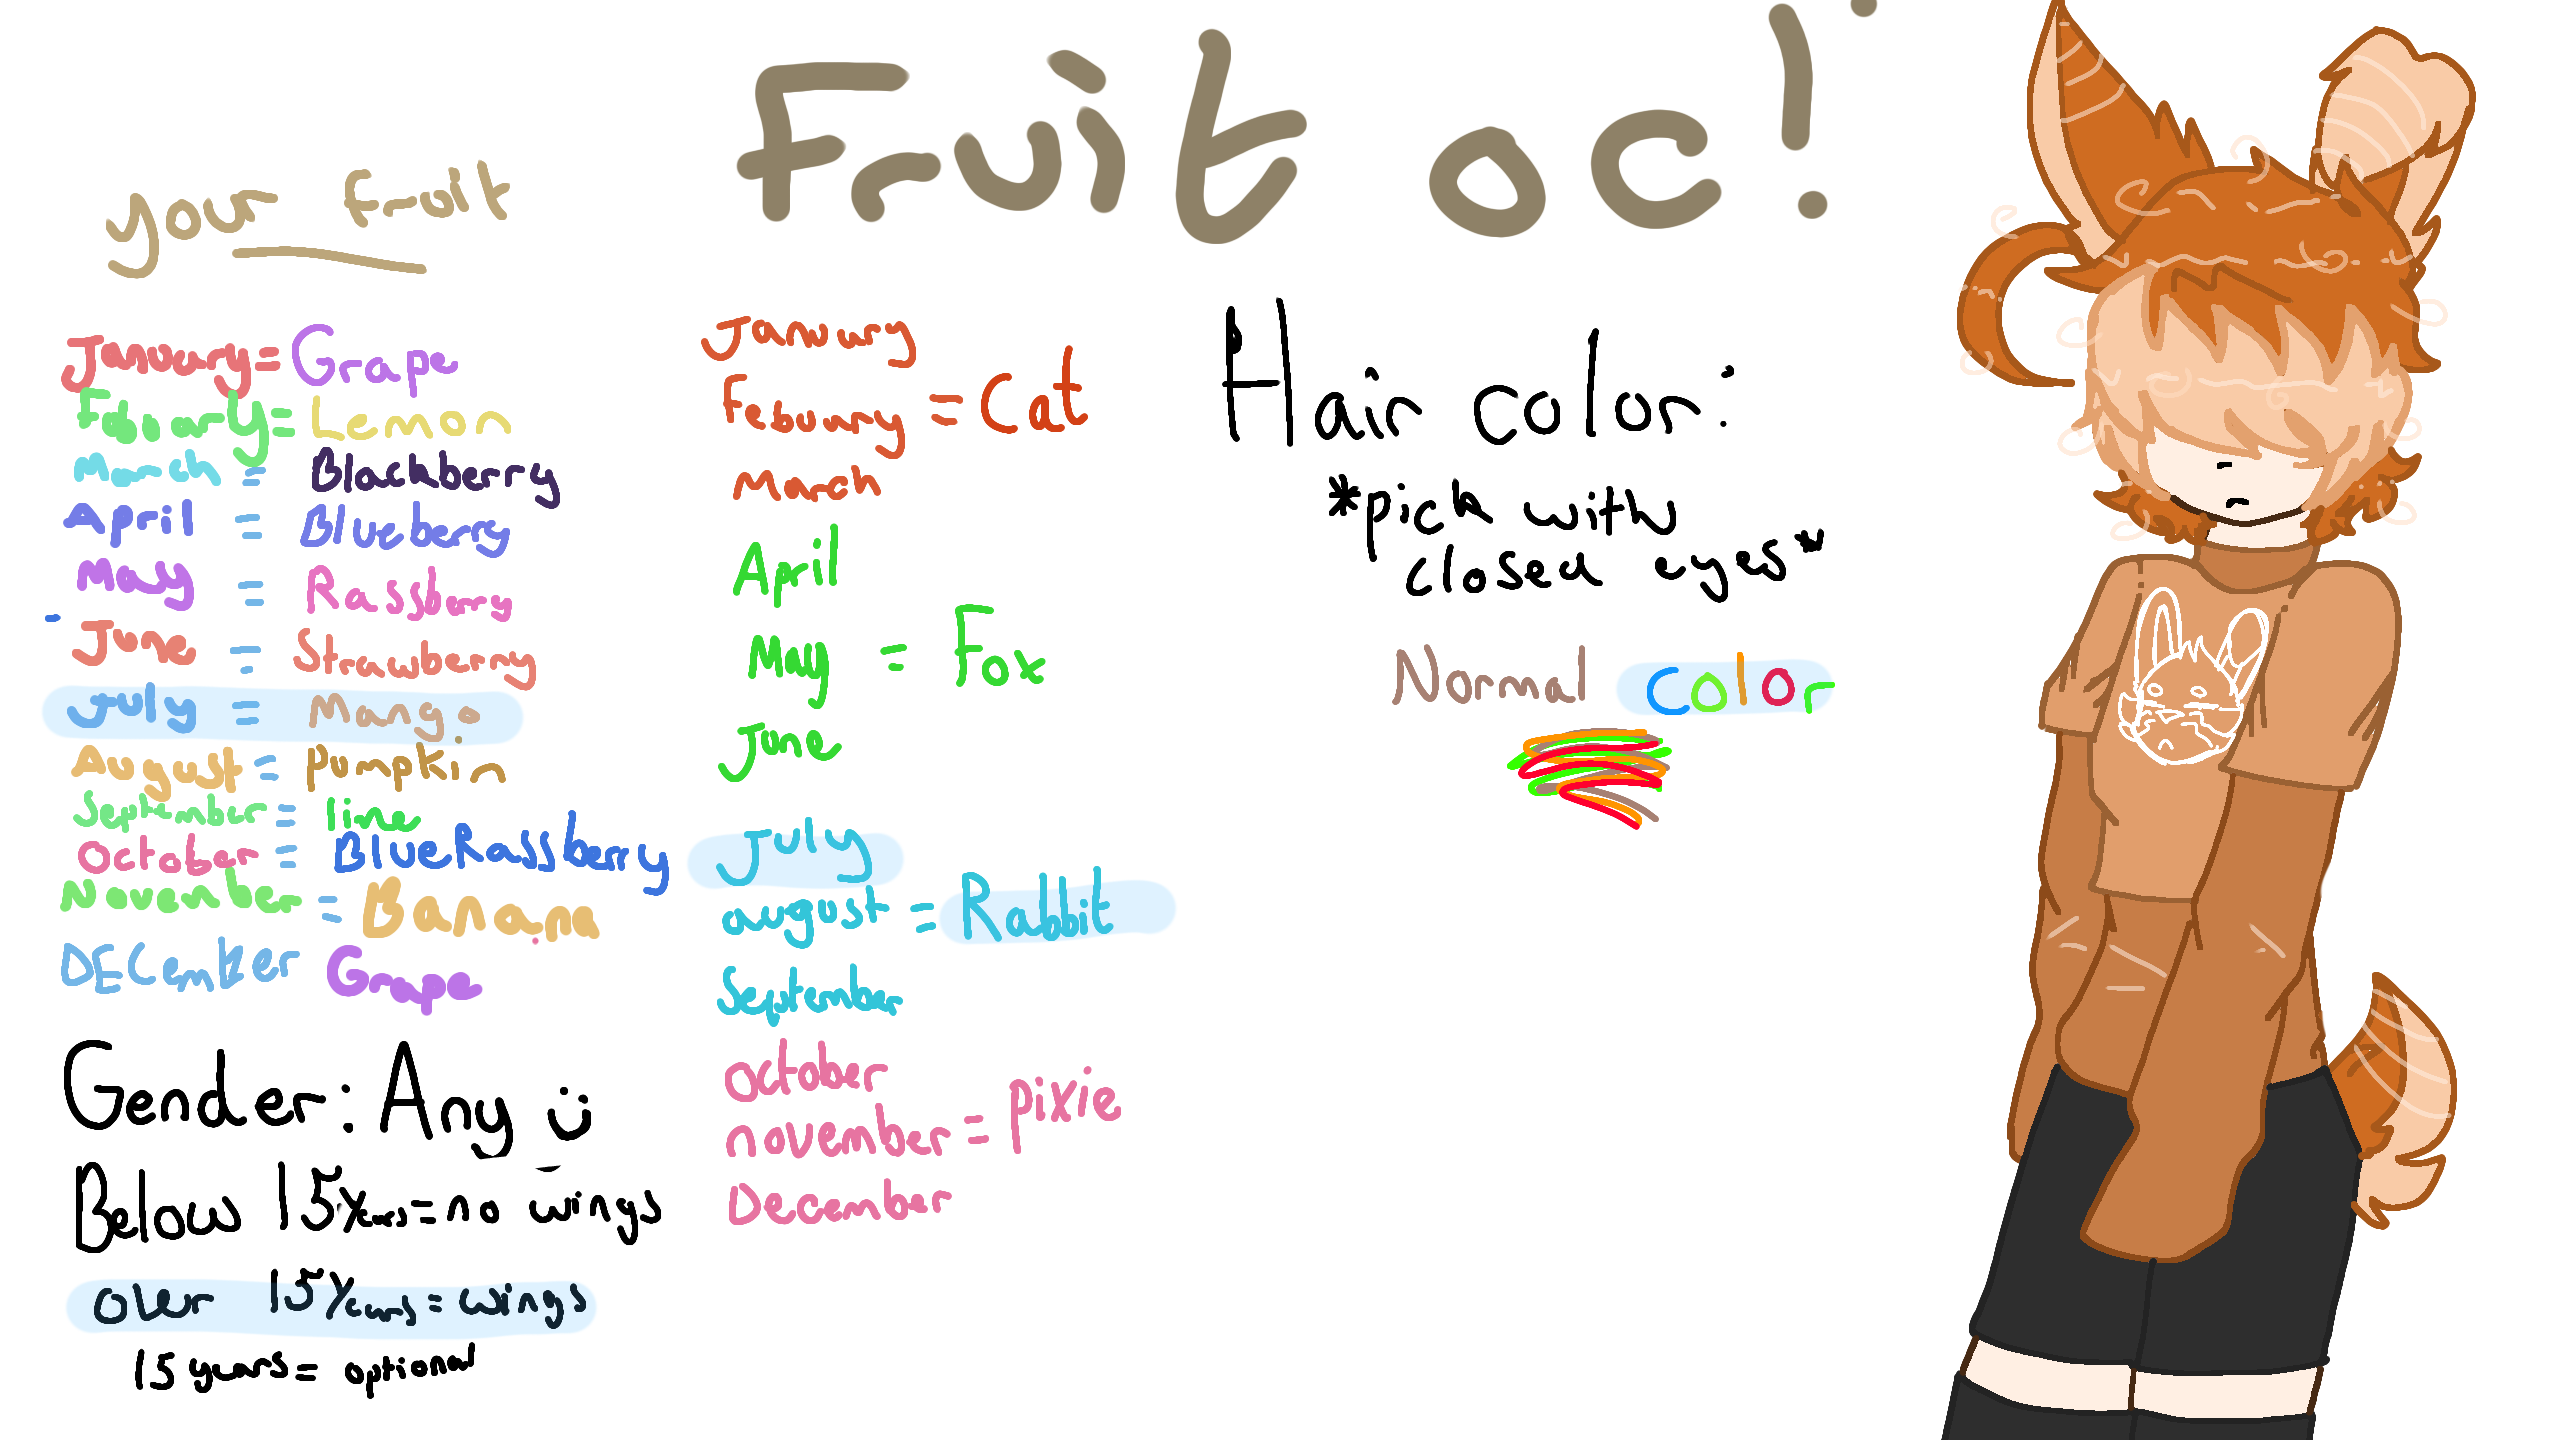 Fruit oc!
your fruit
January = Grape
Febuary = Lemon
March = Blackberry
April = Blueberry
May = Rassberry
June = Strawberry
July = Mango
August = Pumpkin
September = line
October = BlueRassberry
November = Banana
DECember Grape
Gender: Any :)
Below 15years = no wings
over 15years = wings
15 years = optional
Janury
Febuary = Cat
March
April
May = Fox
June
July
august = Rabbit
September
october
november = pixie
December
Hair color:
*pick with
closed eyes*
Normal color